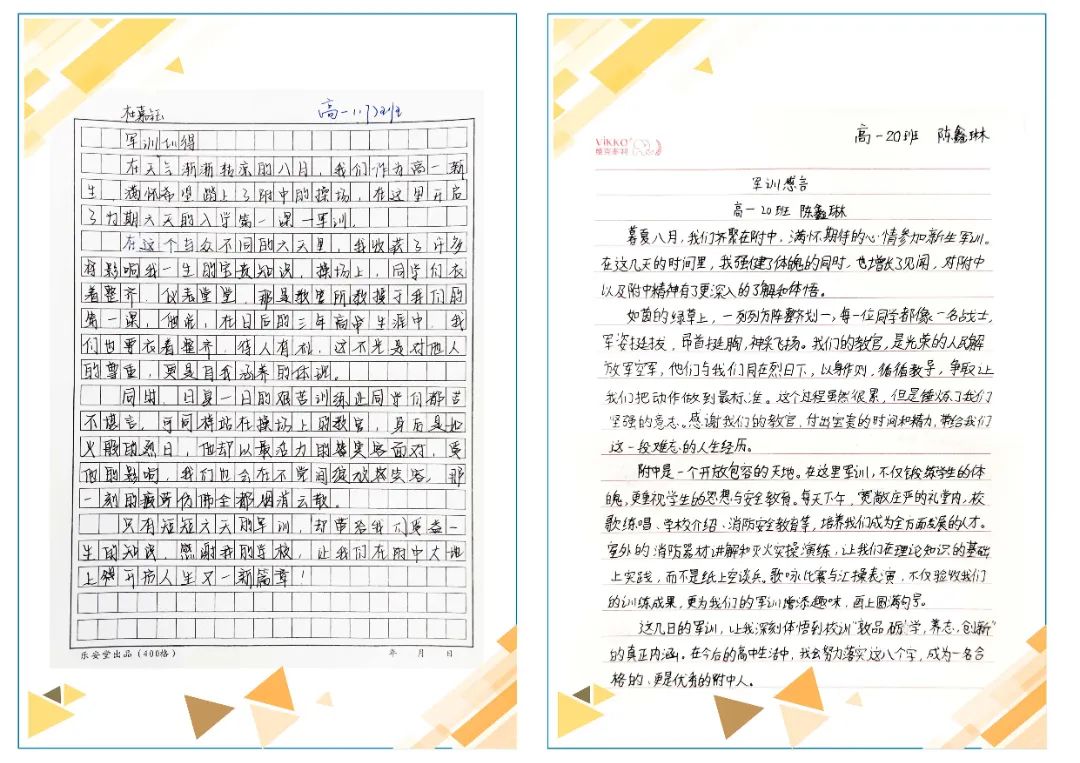 杜嘉钰
高一(17)班
军训心得
在天气渐渐转凉的八月，我们作为高一新
生，满怀希望踏上了附中的操场，在这里开启
了为期六天的入学第一课—军训。
在这个与众不同的六天里，我收获了许多
有影响我一生的宝贵知识，操场上，同学们衣
着整齐，仪表堂堂，那是教官所教授于我们的
第一课，他说，在日后的三年高中生涯中，我
们也要衣着整齐，待人有礼，这不光是对他人
的尊重，更是自我涵养的体现。
同时，日复一日的艰苦训练让同学们都苦
不堪言，可同样站在操场上的教官，身后是如
火般的烈日，他却以最有力的
笑容面对，受
他的影响，我们也会在不觉间绽放
笑容，那
一刻的疲劳仿佛全都烟消云散。
只有短短六天的军训，却带给我们受益一
生的知识，感谢我的学校，让我们在附中大地
上
开拓人生又一新篇章！
乐安堂出品（400格）
年 月 日
VIKKO
维克多利
高一20班 陈鑫琳
军训感言
高一20班 陈鑫琳
暮夏八月，我们齐聚在附中，满怀期待的心情参加新生军训。
在这几天的时间里，我强健了体魄的同时，也增长了见闻，对附中
以及附中精神有了更深入的了解和体悟。
如茵的绿草上，一列列方阵整齐划一，每一位同学都像一名战士，
军姿挺拔，昂首挺胸，神采飞扬。我们的教官，是光荣的人民解
放军空军，他们与我们同在烈日下，以身作则，循循教导，争取让
我们把动作做到最标准。这个过程虽然很累，但是锤炼了我们
坚强的意志。感谢我们的教官，付出宝贵的时间和精力，带给我们
这一段难忘的人生经历。
附中是一个开放包容的天地。在这里军训，不仅锻练学生的体
魄，更重视学生的思想与安全教育。每天下午，宽敞庄严的礼堂内，校
歌练唱、学校介绍、消防安全教育等，培养我们成为全方面发展的人才。
室外的消防器材讲解和灭火实操演练，让我们在理论知识的基础
上实践，而不是纸上空谈兵。歌咏比赛与汇操表演，不仅验收我们
的训练成果，更为我们的军训增添趣味，画上圆满句号。
这几日的军训，让我深刻体悟到校训“敦品砺学，养志创新”
的真正内涵。在今后的高中生活中，我会努力落实这八个字，成为一名合
格的、更是优秀的附中人。